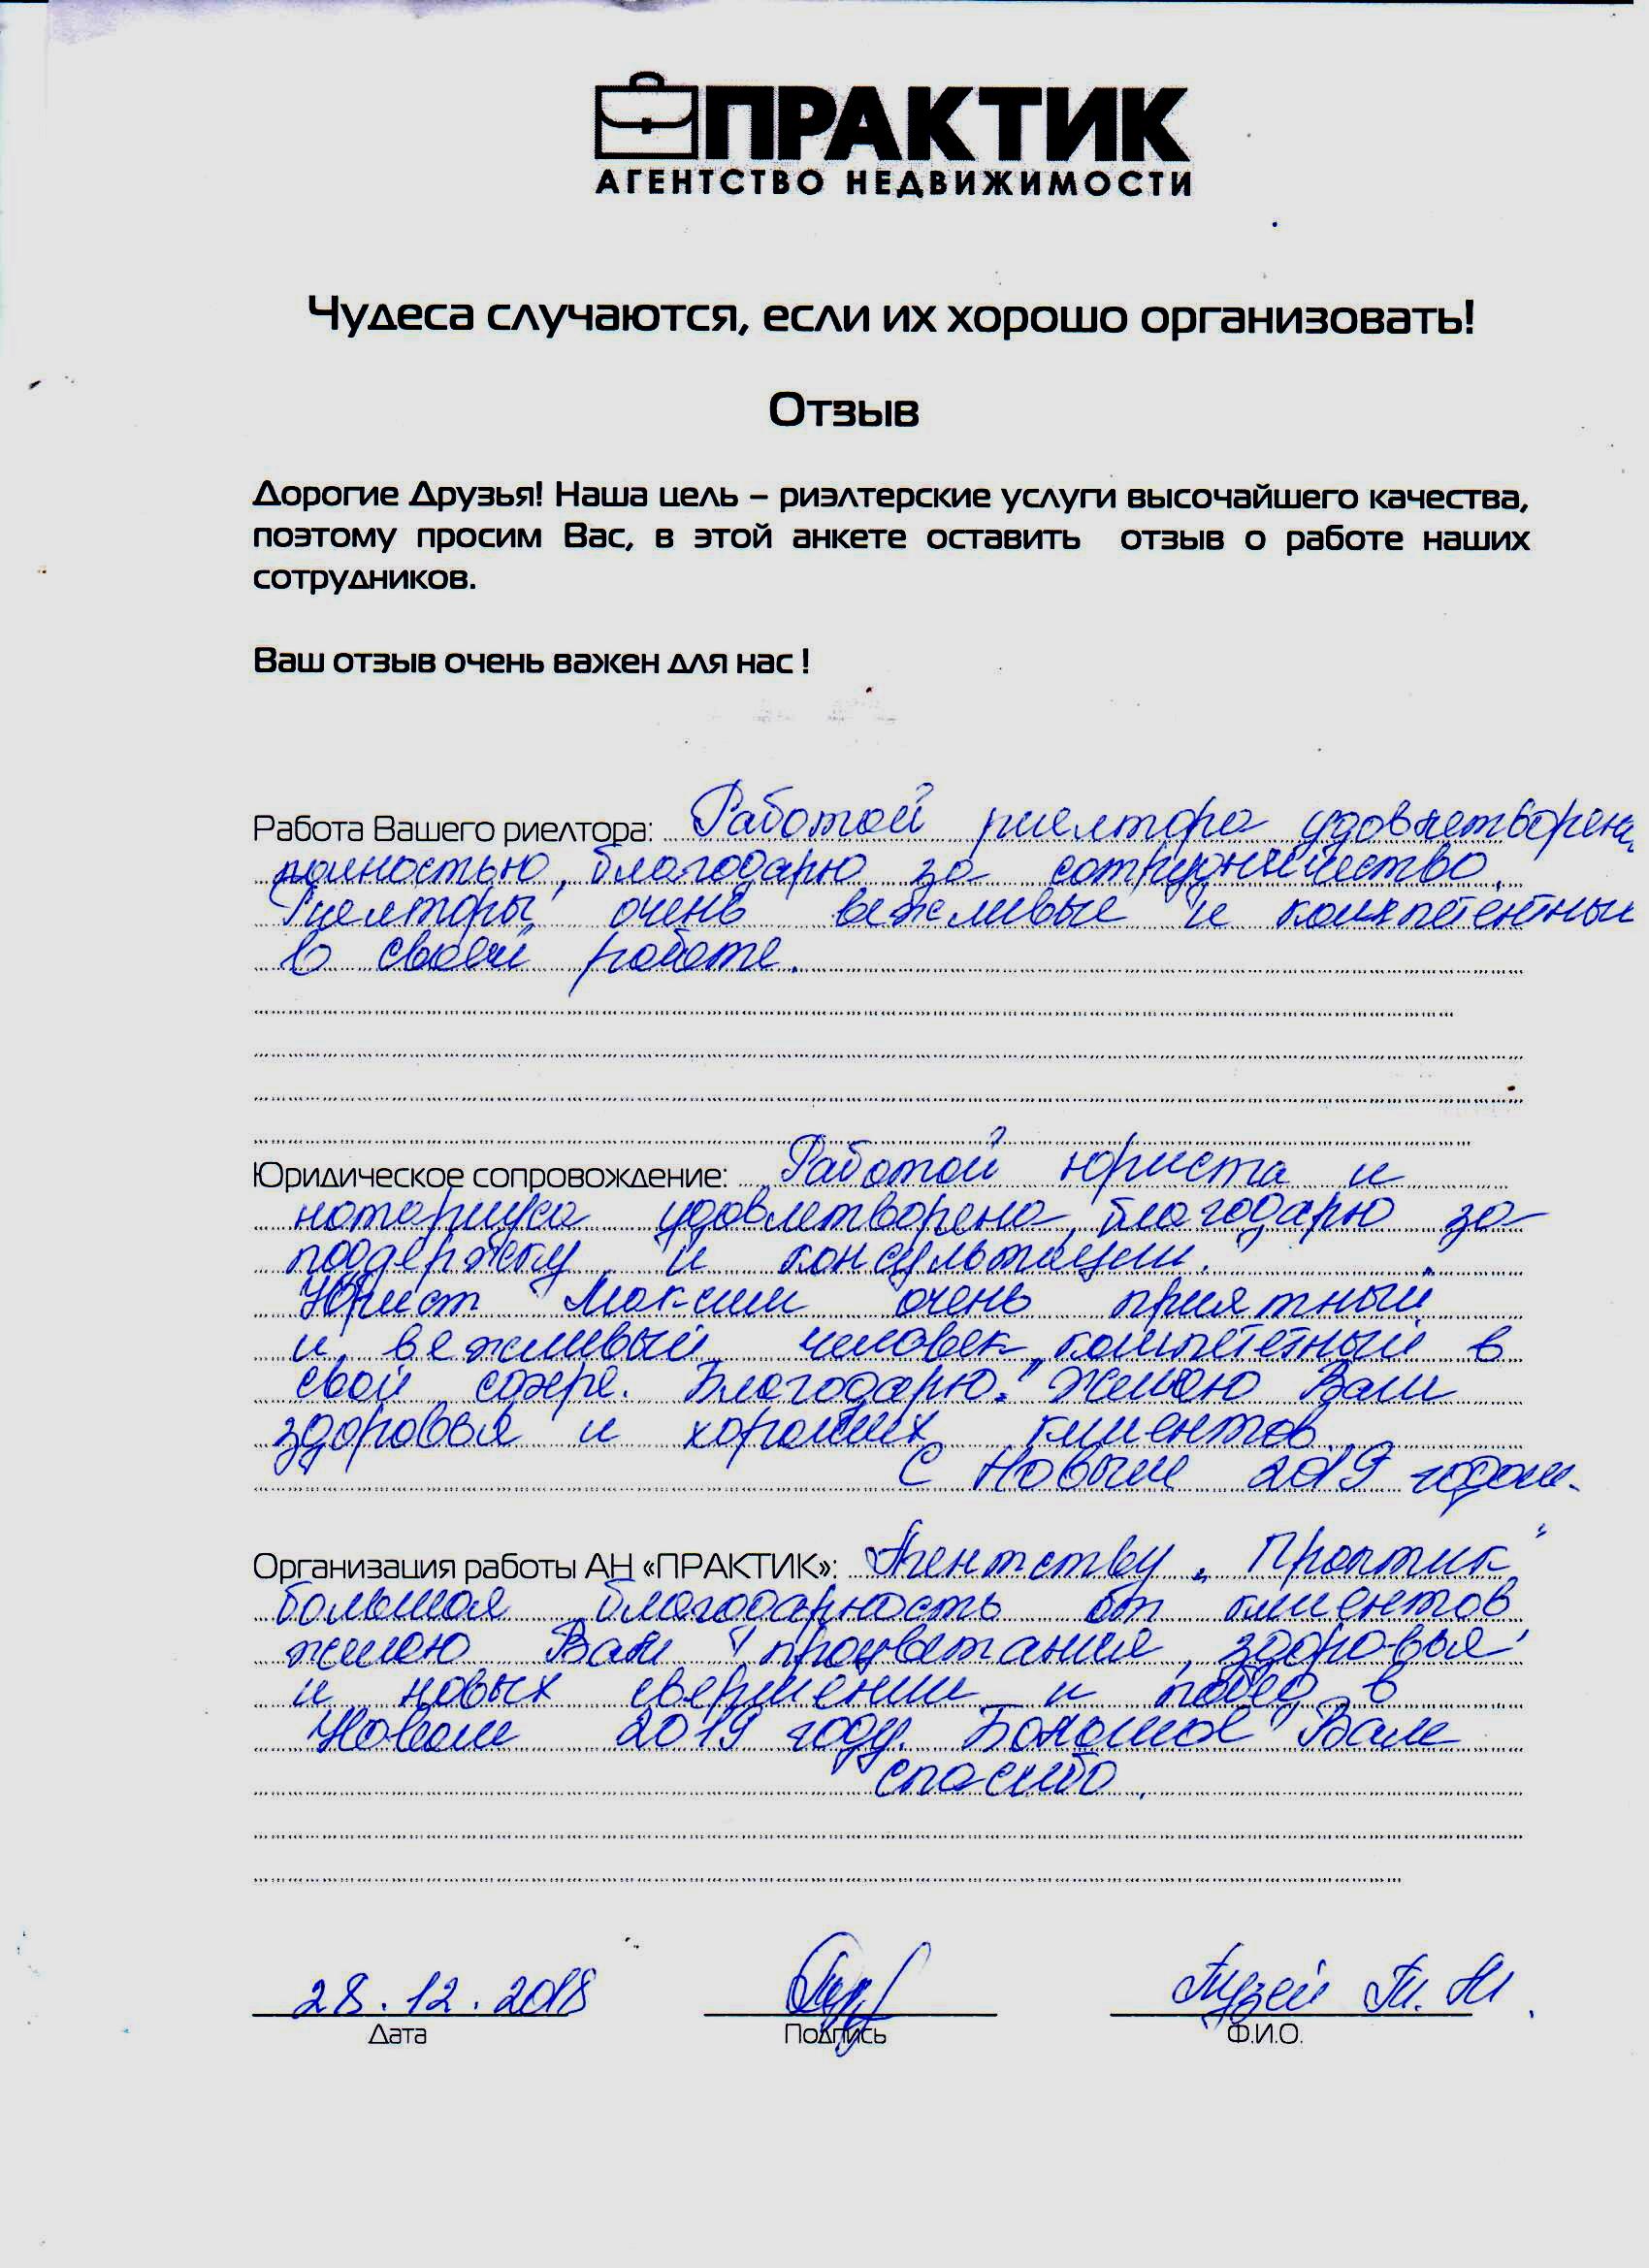 ПРАКТИК
АГЕНТСТВО НЕДВИЖИМОСТИ
Чудеса случаются, если их хорошо организовать!
Отзыв
Дорогие Друзья! Наша цель – риэлтерские услуги высочайшего качества,
поэтому просим Вас, в этой анкете оставить отзыв о работе наших
сотрудников.
Ваш отзыв очень важен для нас !
Работа Вашего риелтора: Работой риелтора удовлетворена
полностью, благодарю за сотрудничество.
Риелторы очень вежливые и компетентные
в своей работе.
Юридическое сопровождение: Работой юриста и
нотариуса удовлетворена, благодарю за
поддержку и консультации.
Юрист Максим очень приятный
и вежливый человек, компетентный в
свой сфере. Благодарю. Желаю Вам
здоровья и хороших клиентов.
С Новым 2019 годом.
Организация работы АН «ПРАКТИК»: Агентству „Практик“
большая благодарность от клиентов
желаю Вам процветания, здоровья
и новых свершений и побед в
Новом 2019 году. Большое Вам
спасибо.
28.12.2018
Дата Подпись Ф.И.О.